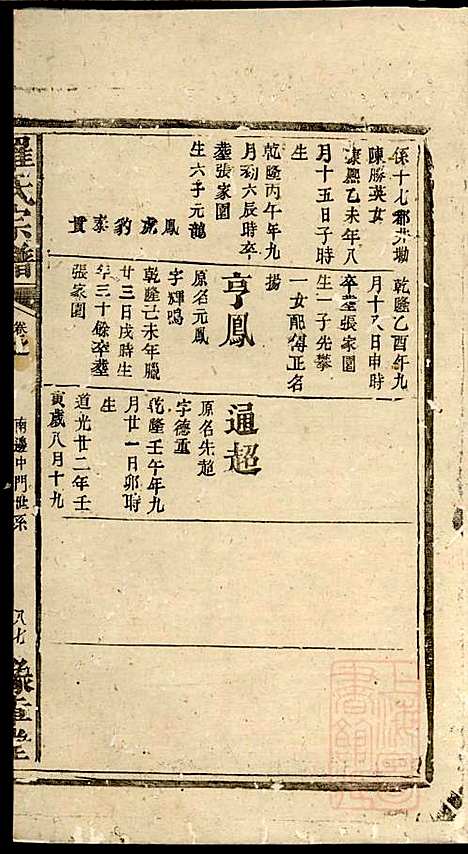 係十七都井坳
陳勝英女
康熙乙未年八
月十五日子時
生
乾隆丙午年九
月初六辰時卒
塟張家園
生六子元龍
鳳
虎
豹
泰
貫
乾隆乙酉年九
月十八日申時
卒塟張家園
生一子先攀
一女配傅正名
揚
亨鳳
原名元鳳
字輝鳴
乾隆己未年臘
廿三日戌時生
年三十餘卒塟
張家園
通超
原名先超
字德重
乾隆壬午年九
月廿一日卯時
生
道光廿二年壬
寅歲八月十九
羅氏宗譜
南邊中門世系
八七
豫章堂